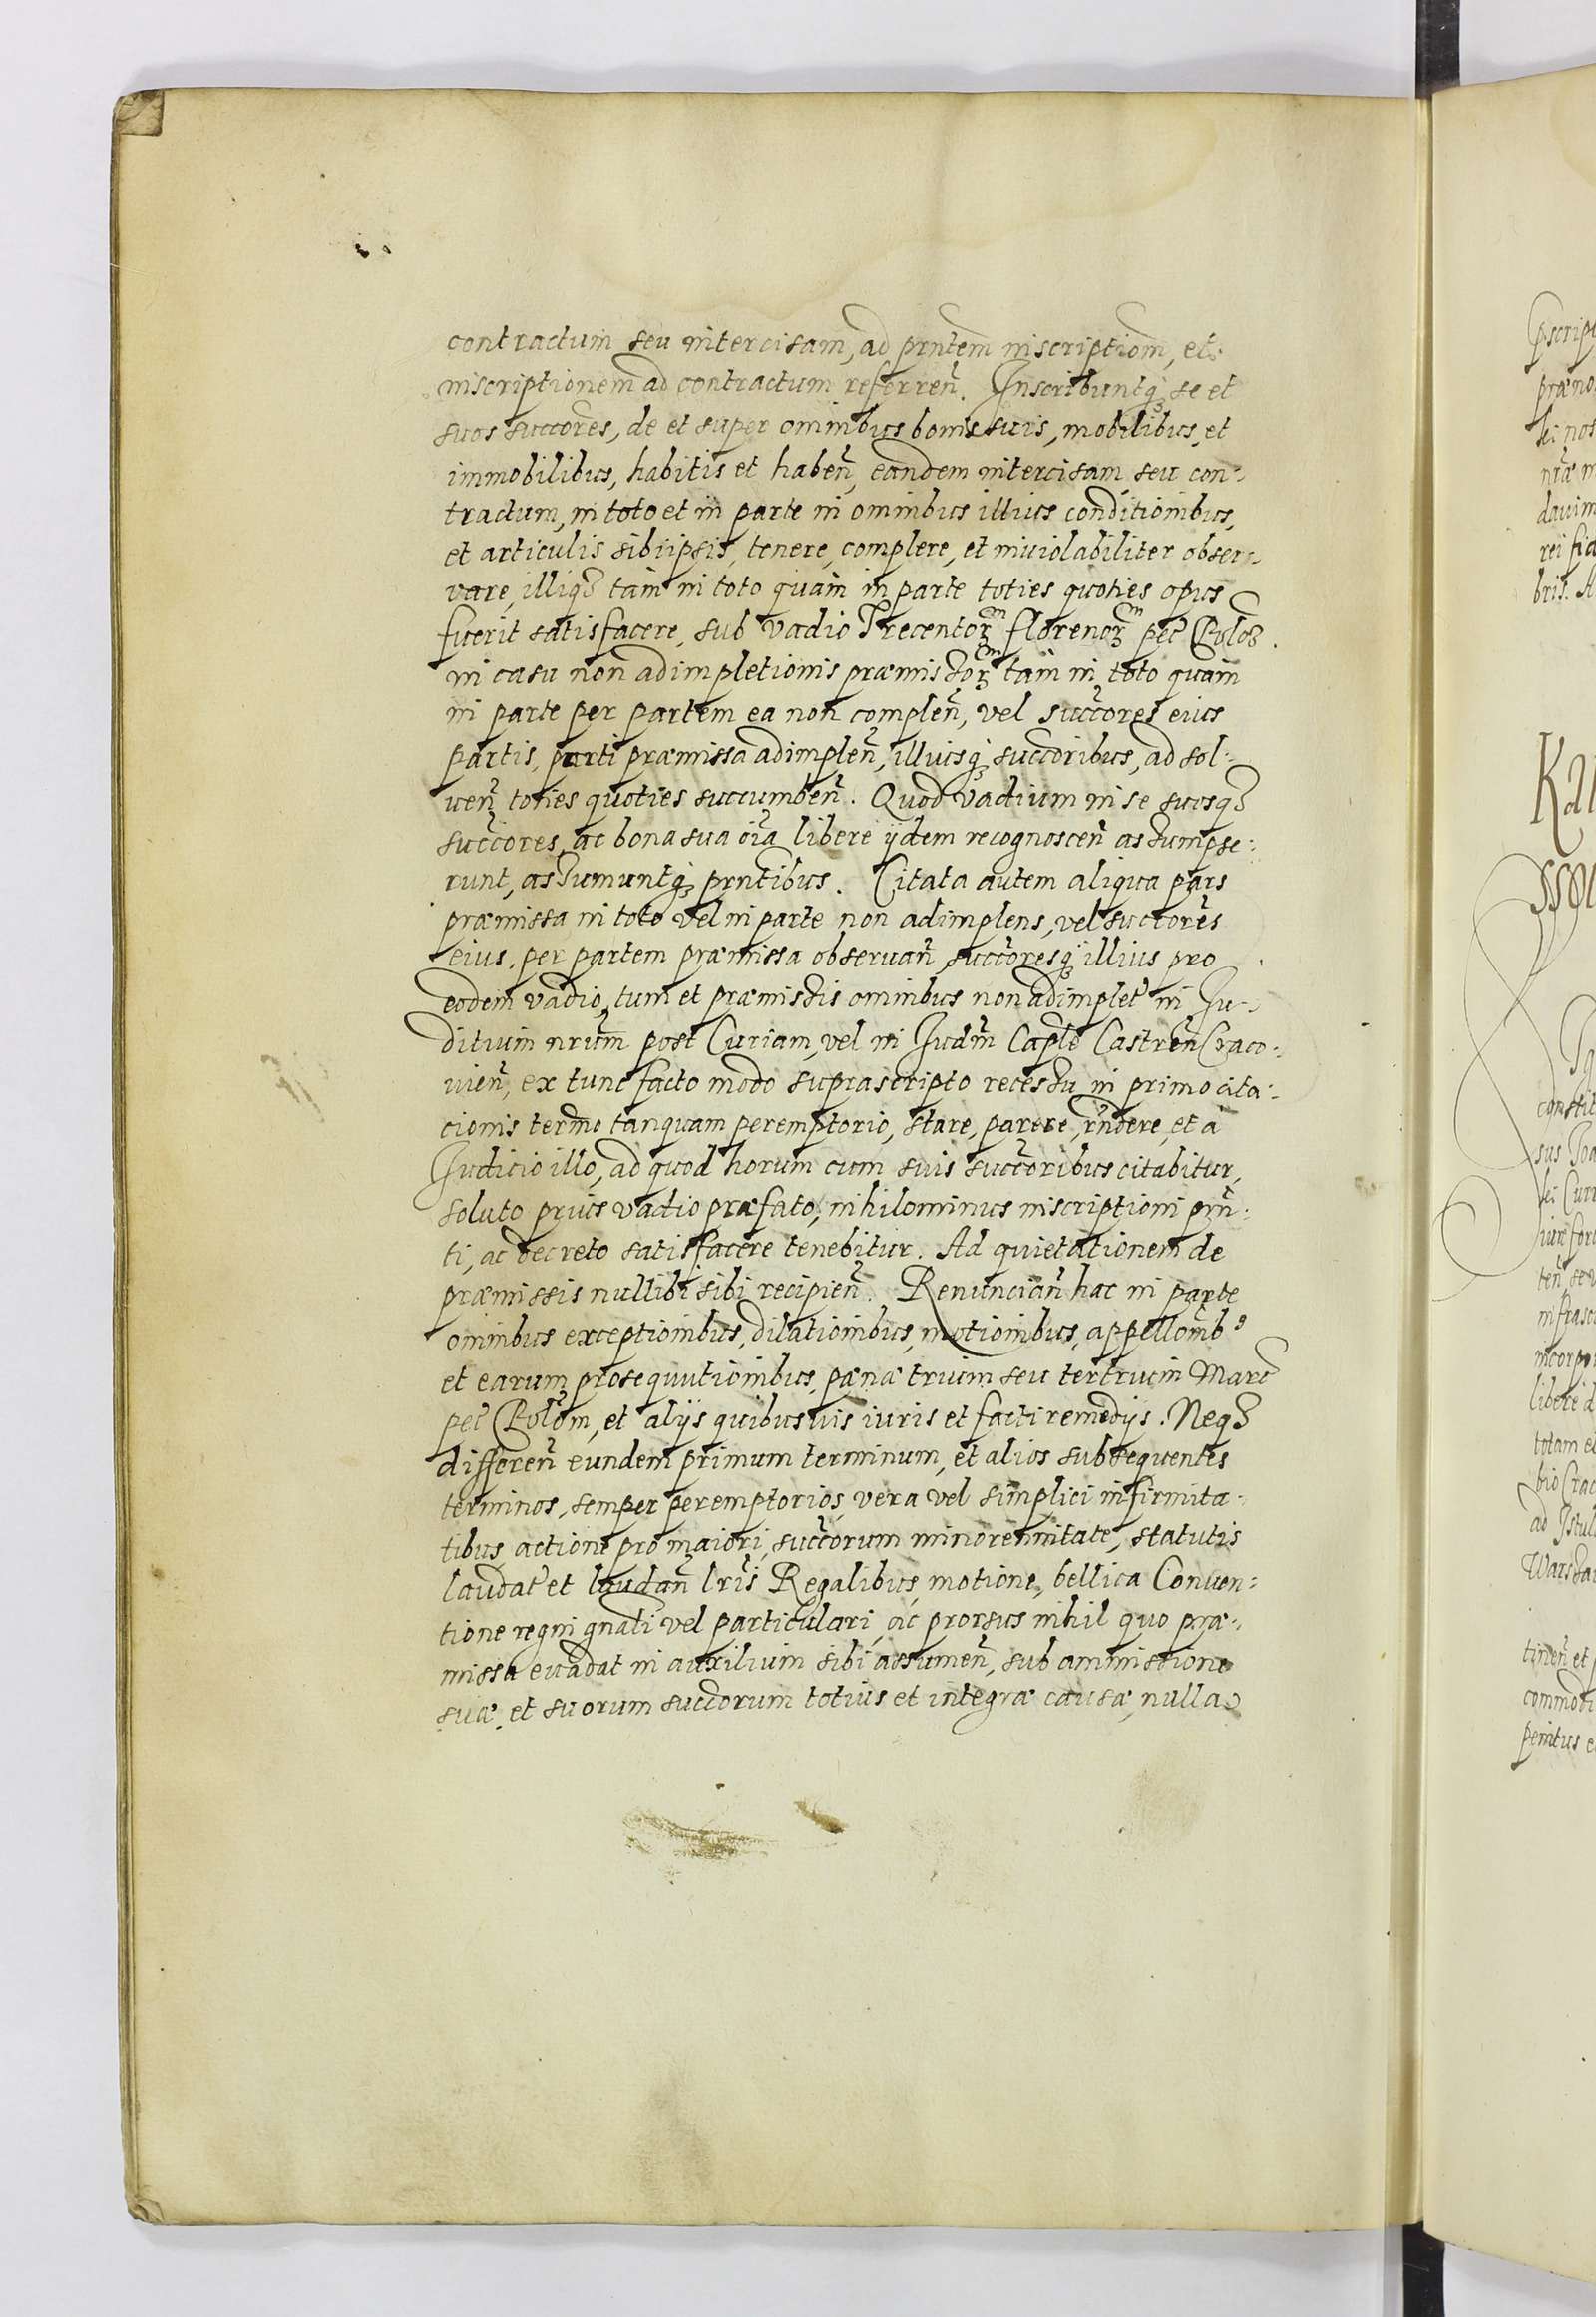 contractum seu intercisam, ad prntem inscriptiom, et
inscriptionem ad contractum referren. Inscribuntq se et
suos succores, de et super omnibus bonis suis, mobilibus, et
immobilibus, habitis et haben, eandem intercisam, seu con-
tractum, in toto et in parte in omnibus illius conditionibus,
et articulis sibiipsis, tenere, complere, et inviolabiliter obser-
vare, illiq tam in toto quam in parte toties quoties opus
fuerit satisfacere, sub vadio Trecentor florenor pec Polo
in casu non adimpletionis præmissor tam in toto quam
in parte per partem ea non complen, vel succores eius
partis, parti præmissa adimplen, illiusq succoribus, ad sol-
uen toties quoties succumben. Quod vadium in se suosq
succores, ac bona sua oia libere ijdem recognoscen assumpse-
runt, assumuntq prntibus. Citata autem aliqua pars
præmissa in toto vel in parte non adimplens, vel succores
eius, per partem præmissa obseruan succoresq illius pro
eodem vadio, tum et præmissis omnibus non adimplet in Ju-
ditium nrum post Curiam, vel in Judm Caple Castren Craco-
uien, ex tunc facto modo suprascripto recessu in primo cita-
cionis termo tanquam peremptorio, stare, parere, rndere, et à
Judicio illo, ad quod horum cum suis succoribus citabitur,
soluto prius vadio præfato, nihilominus inscriptioni prn-
ti, ac decreto satisfacere tenebitur. Ad quietationem de
præmissis nullibi sibi recipien. Renuncian hac in parte
omnibus exceptionibus, dilationibus, motionibus, appellomb9
et earum prosequutionibus, pæna trium seu tertrium Marc
pec Polom, et alijs quibusuis iuris et facti remedijs. Neq
differen eundem primum terminum, et alios subsequentes
terminos, semper peremptorios, vera vel simplici infirmita-
tibus, actione pro maiori, succorum minorennitate, statutis
laudat et laudan lris Regalibus, motione, bellica Conuen-
tione regni gnali vel particulari, ac prorsus nihil quo præ-
missa euadat in auxilium sibi assumen, sub ammissione
suæ et suorum succorum totius et integræ causæ, nulla